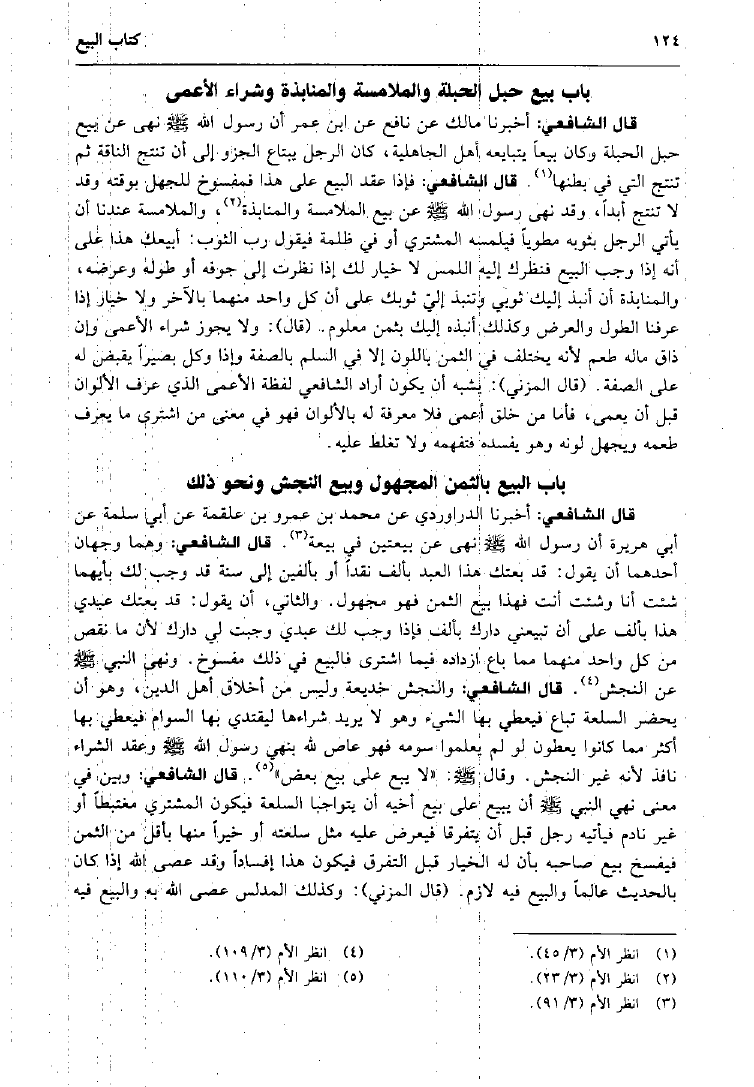 ١٢٤ كتاب البيع
باب بيع حبل الحبلة والملامسة والمنابذة وشراء الأعمى
قال الشافعي: أخبرنا مالك عن نافع عن ابن عمر أن رسول الله ﷺ نهى عن بيع
حبل الحبلة وكان بيعاً يتبايعه أهل الجاهلية، كان الرجل يبتاع الجزو إلى أن تنتج الناقة ثم
تنتج التي في بطنها(١). قال الشافعي: فإذا عقد البيع على هذا فمفسوخ للجهل بوقته وقد
لا تنتج أبداً، وقد نهى رسول الله ﷺ عن بيع الملامسة والمنابذة(٢)، والملامسة عندنا أن
يأتي الرجل بثوبه مطوياً فيلمسه المشتري أو في ظلمة فيقول رب الثوب: أبيعك هذا على
أنه إذا وجب البيع فنظرك إليه اللمس لا خيار لك إذا نظرت إلى جوفه أو طوله وعرضه،
والمنابذة أن أنبذ إليك ثوبي وتنبذ إليّ ثوبك على أن كل واحد منهما بالآخر ولا خيار إذا
عرفنا الطول والعرض وكذلك أنبذه إليك بثمن معلوم. (قال): ولا يجوز شراء الأعمى وإن
ذاق ماله طعم لأنه يختلف في الثمن باللون إلا في السلم بالصفة وإذا وكل بصيراً يقبض له
على الصفة. (قال المزني): يشبه أن يكون أراد الشافعي لفظة الأعمى الذي عرف الألوان
قبل أن يعمى، فأما من خلق أعمى فلا معرفة له بالألوان فهو في معنى من اشترى ما يعرف
طعمه ويجهل لونه وهو يفسده فتفهمه ولا تغلط عليه.
باب البيع بالثمن المجهول وبيع النجش ونحو ذلك
قال الشافعي: أخبرنا الدراوردي عن محمد بن عمرو بن علقمة عن أبي سلمة عن
أبي هريرة أن رسول الله ﷺ نهى عن بيعتين في بيعة(٣). قال الشافعي: وهما وجهان
أحدهما أن يقول: قد بعتك هذا العبد بألف نقداً أو بألفين إلى سنة قد وجب لك بأيهما
شئت أنا وشئت أنت فهذا بيع الثمن فهو مجهول. والثاني، أن يقول: قد بعتك عبدي
هذا بألف على أن تبيعني دارك بألف فإذا وجب لك عبدي وجبت لي دارك لأن ما نقص
من كل واحد منهما مما باع ازداده فيما اشترى فالبيع في ذلك مفسوخ. ونهى النبي ﷺ
عن النجش(٤). قال الشافعي: والنجش خديعة وليس من أخلاق أهل الدين، وهو أن
يحضر السلعة تباع فيعطي بها الشيء وهو لا يريد شراءها ليقتدي بها السوام فيعطي بها
أكثر مما كانوا يعطون لو لم يعلموا سومه فهو عاص لله بنهي رسول الله ﷺ وعقد الشراء
نافذ لأنه غير النجش. وقال ﷺ: «لا يبع على بيع بعض»(٥). قال الشافعي: وبين في
معنى نهي النبي ﷺ أن يبيع على بيع أخيه أن يتواجبا السلعة فيكون المشتري مغتبطاً أو
غير نادم فيأتيه رجل قبل أن يتفرقا فيعرض عليه مثل سلعته أو خيراً منها بأقل من الثمن
فيفسخ بيع صاحبه بأن له الخيار قبل التفرق فيكون هذا إفساداً وقد عصى الله إذا كان
بالحديث عالماً والبيع فيه لازم. (قال المزني): وكذلك المدلس عصى الله به والبيع فيه
(١) انظر الأم (٤٥/٣).
(٢) انظر الأم (٢٣/٣).
(٣) انظر الأم (٩١/٣).
(٤) انظر الأم (١٠٩/٣).
(٥) انظر الأم (١١٠/٣).